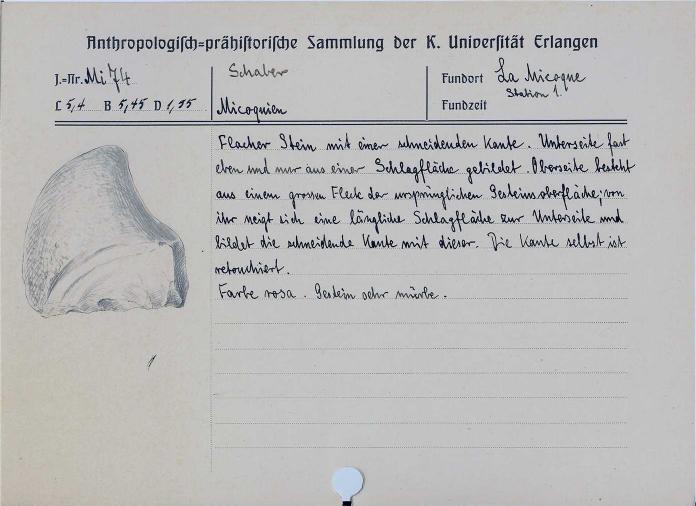 Anthropologisch=prähistorische Sammlung der K. Universität Erlangen
J.=Nr. Mi 74
Schaber
Fundort La Micoque
Station 1.
L 5,4 B 5,45 D 1,55
Micoquien
Fundzeit
Flacher Stein mit einer schneidenden Kante. Unterseite fast
eben und nur aus einer Schlagfläche gebildet. Oberseite besteht
aus einem grossen Fleck der ursprünglichen Gesteinsoberfläche; von
ihr neigt sich eine längliche Schlagfläche zur Unterseite und
bildet die schneidende Kante mit dieser. Die Kante selbst ist
retouchiert.
Farbe rosa. Gestein sehr mürbe.